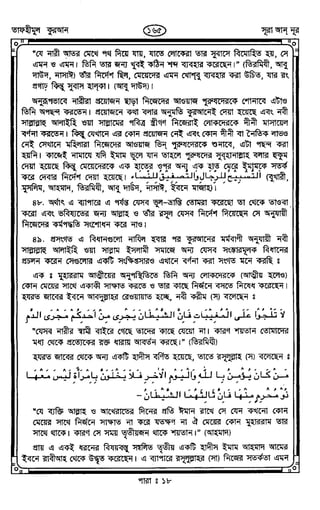 তাফহীমুল কুরআন
১৬৫
সূরা আন্ নূর
"যে নারী আতর মেখে পথ দিয়ে যায়, যাতে লোকেরা তার সুবাসে বিমোহিত হয়, সে
এমন ও এমন। তিনি তার জন্য খুবই কঠিন শব্দ ব্যবহার করেছেন।" (তিরমিযী, আবু
দাউদ, নাসাঈ) তাঁর নির্দেশ ছিল, মেয়েদের এমন খোশবু ব্যবহার করা উচিত, যার রং
প্রগাঢ় কিন্তু সুবাস হালকা। (আবু দাউদ)।
অনুরূপভাবে নারীরা প্রয়োজন ছাড়া নিজেদের আওয়াজ পুরুষদেরকে শোনাবে এটাও
তিনি অপছন্দ করতেন। প্রয়োজনে কথা বলার অনুমতি কুরআনেই দেয়া হয়েছে এবং নবী
সাল্লাল্লাহু আলাইহি ওয়া সাল্লামের পবিত্র স্ত্রীগণ নিজেরাই লোকদেরকে দীনী মাসায়েল
বর্ণনা করতেন। কিন্তু যেখানে এর কোন প্রয়োজন নেই এবং কোন দীনী বা নৈতিক লাভও
নেই সেখানে মহিলারা নিজেদের আওয়াজ ভিন্ পুরুষদেরকে শুনাবে, এটা পছন্দ করা
হয়নি। কাজেই নামাযে যদি ইমাম ভুলে যান তাহলে পুরুষদের সুবহানাল্লাহ বলার হুকুম
দেয়া হয়েছে কিন্তু মেয়েদেরকে এক হাতের ওপর অন্য এক হাত মেরে ইমামকে সতর্ক
করে দেবার নির্দেশ দেয়া হয়েছে। التسبيح للرجال والتصفيق للنساء (বুখারী,
মুসলিম, আহমাদ, তিরমিযী, আবু দাউদ, নাসাঈ, ইবনে মাজাহ)।
৪৮. অর্থাৎ এ ব্যাপারে এ পর্যন্ত যেসব ভুল-ভ্রান্তি তোমরা করেছো তা থেকে তাওবা
করো এবং ভবিষ্যতের জন্য আল্লাহ ও তাঁর রসূল যেসব নির্দেশ দিয়েছেন সে অনুযায়ী
নিজেদের কর্মপদ্ধতি সংশোধন করে নাও।
৪৯. প্রসংগত এ বিধানগুলো নাযিল হবার পর কুরআনের মর্মবাণী অনুযায়ী নবী
সাল্লাল্লাহু আলাইহি ওয়া সাল্লাম ইসলামী সমাজে অন্য যেসব সংস্কারমূলক বিধানের
প্রচলন করেন সেগুলোর একটি সংক্ষিপ্তসারও এখানে বর্ণনা করা সংগত মনে করছি ঃ
এক ঃ মাহরাম আত্মীয়ের অনুপস্থিতিতে তিনি অন্য লোকদেরকে (আত্মীয় হলেও)
কোন মেয়ের সাথে একাকী সাক্ষাত করতে ও তার কাছে নির্জনে বসতে নিষেধ করেছেন।
হযরত জাবের ইবনে আবদুল্লাহর রেওয়ায়াত হচ্ছে, নবী করীম (সা) বলেছেন ঃ
لا تلجوا على المغيبات فان الشيطان يجرى من احدكم مجرى الدم
"যেসব নারীর স্বামী বাইরে গেছে তাদের কাছে যেয়ো না। কারণ শয়তান তোমাদের
মধ্য থেকে প্রত্যেকের রক্ত ধারায় আবর্তন করছে।" (তিরমিযী)
হযরত জাবের থেকে অন্য একটি হাদীস বর্ণিত হয়েছে, তাতে রসূলুল্লাহ (সা) বলেছেন ঃ
من كان يؤمن بالله واليوم الاخر فلا يخلون بامرأة ليس معها
ذو محرم منها فان ثالثهما الشيطان -
"যে ব্যক্তি আল্লাহ ও আখেরাতের দিনের প্রতি ঈমান রাখে সে যেন কখনো কোন
মেয়ের সাথে নির্জনে সাক্ষাত না করে যতক্ষণ না ঐ মেয়ের কোন মাহরাম তার
সাথে থাকে। কারণ সে সময় তৃতীয়জন থাকে শয়তান।" (আহমাদ)
প্রায় এ একই ধরনের বিষয়বস্তু সম্বলিত তৃতীয় একটি হাদীস ইমাম আহমাদ আমের
ইবনে রাবীআহ থেকে উদ্ধৃত করেছেন। এ ব্যাপারে রসূলুল্লাহর (সা) নিজের সতর্কতা এমন
পারা ঃ ১৮